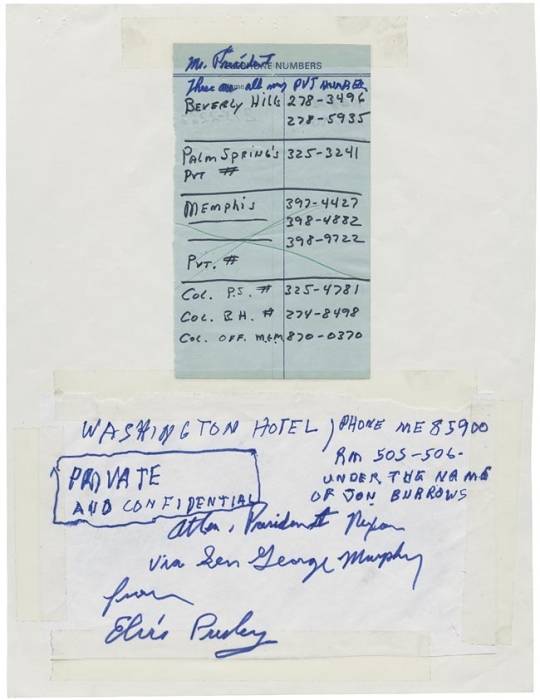 Mr. President
PHONE NUMBERS
These are all my PVT numbers
BEVERLY HILLS 278-3496
278-5935
PALM SPRING'S 325-3241
PVT #
MEMPHIS 397-4427
398-4882
398-9722
PVT. #
COL. P.S. # 325-4781
COL. B.H. # 274-8498
COL. OFF. MEM 870-0370
WASHINGTON HOTEL) PHONE ME 85900
RM 505-506-
PRIVATE
AND CONFIDENTIAL
UNDER THE NAME
OF JON BURROWS
Atten. President Nixon
via Sen George Murphy
from
Elvis Presley